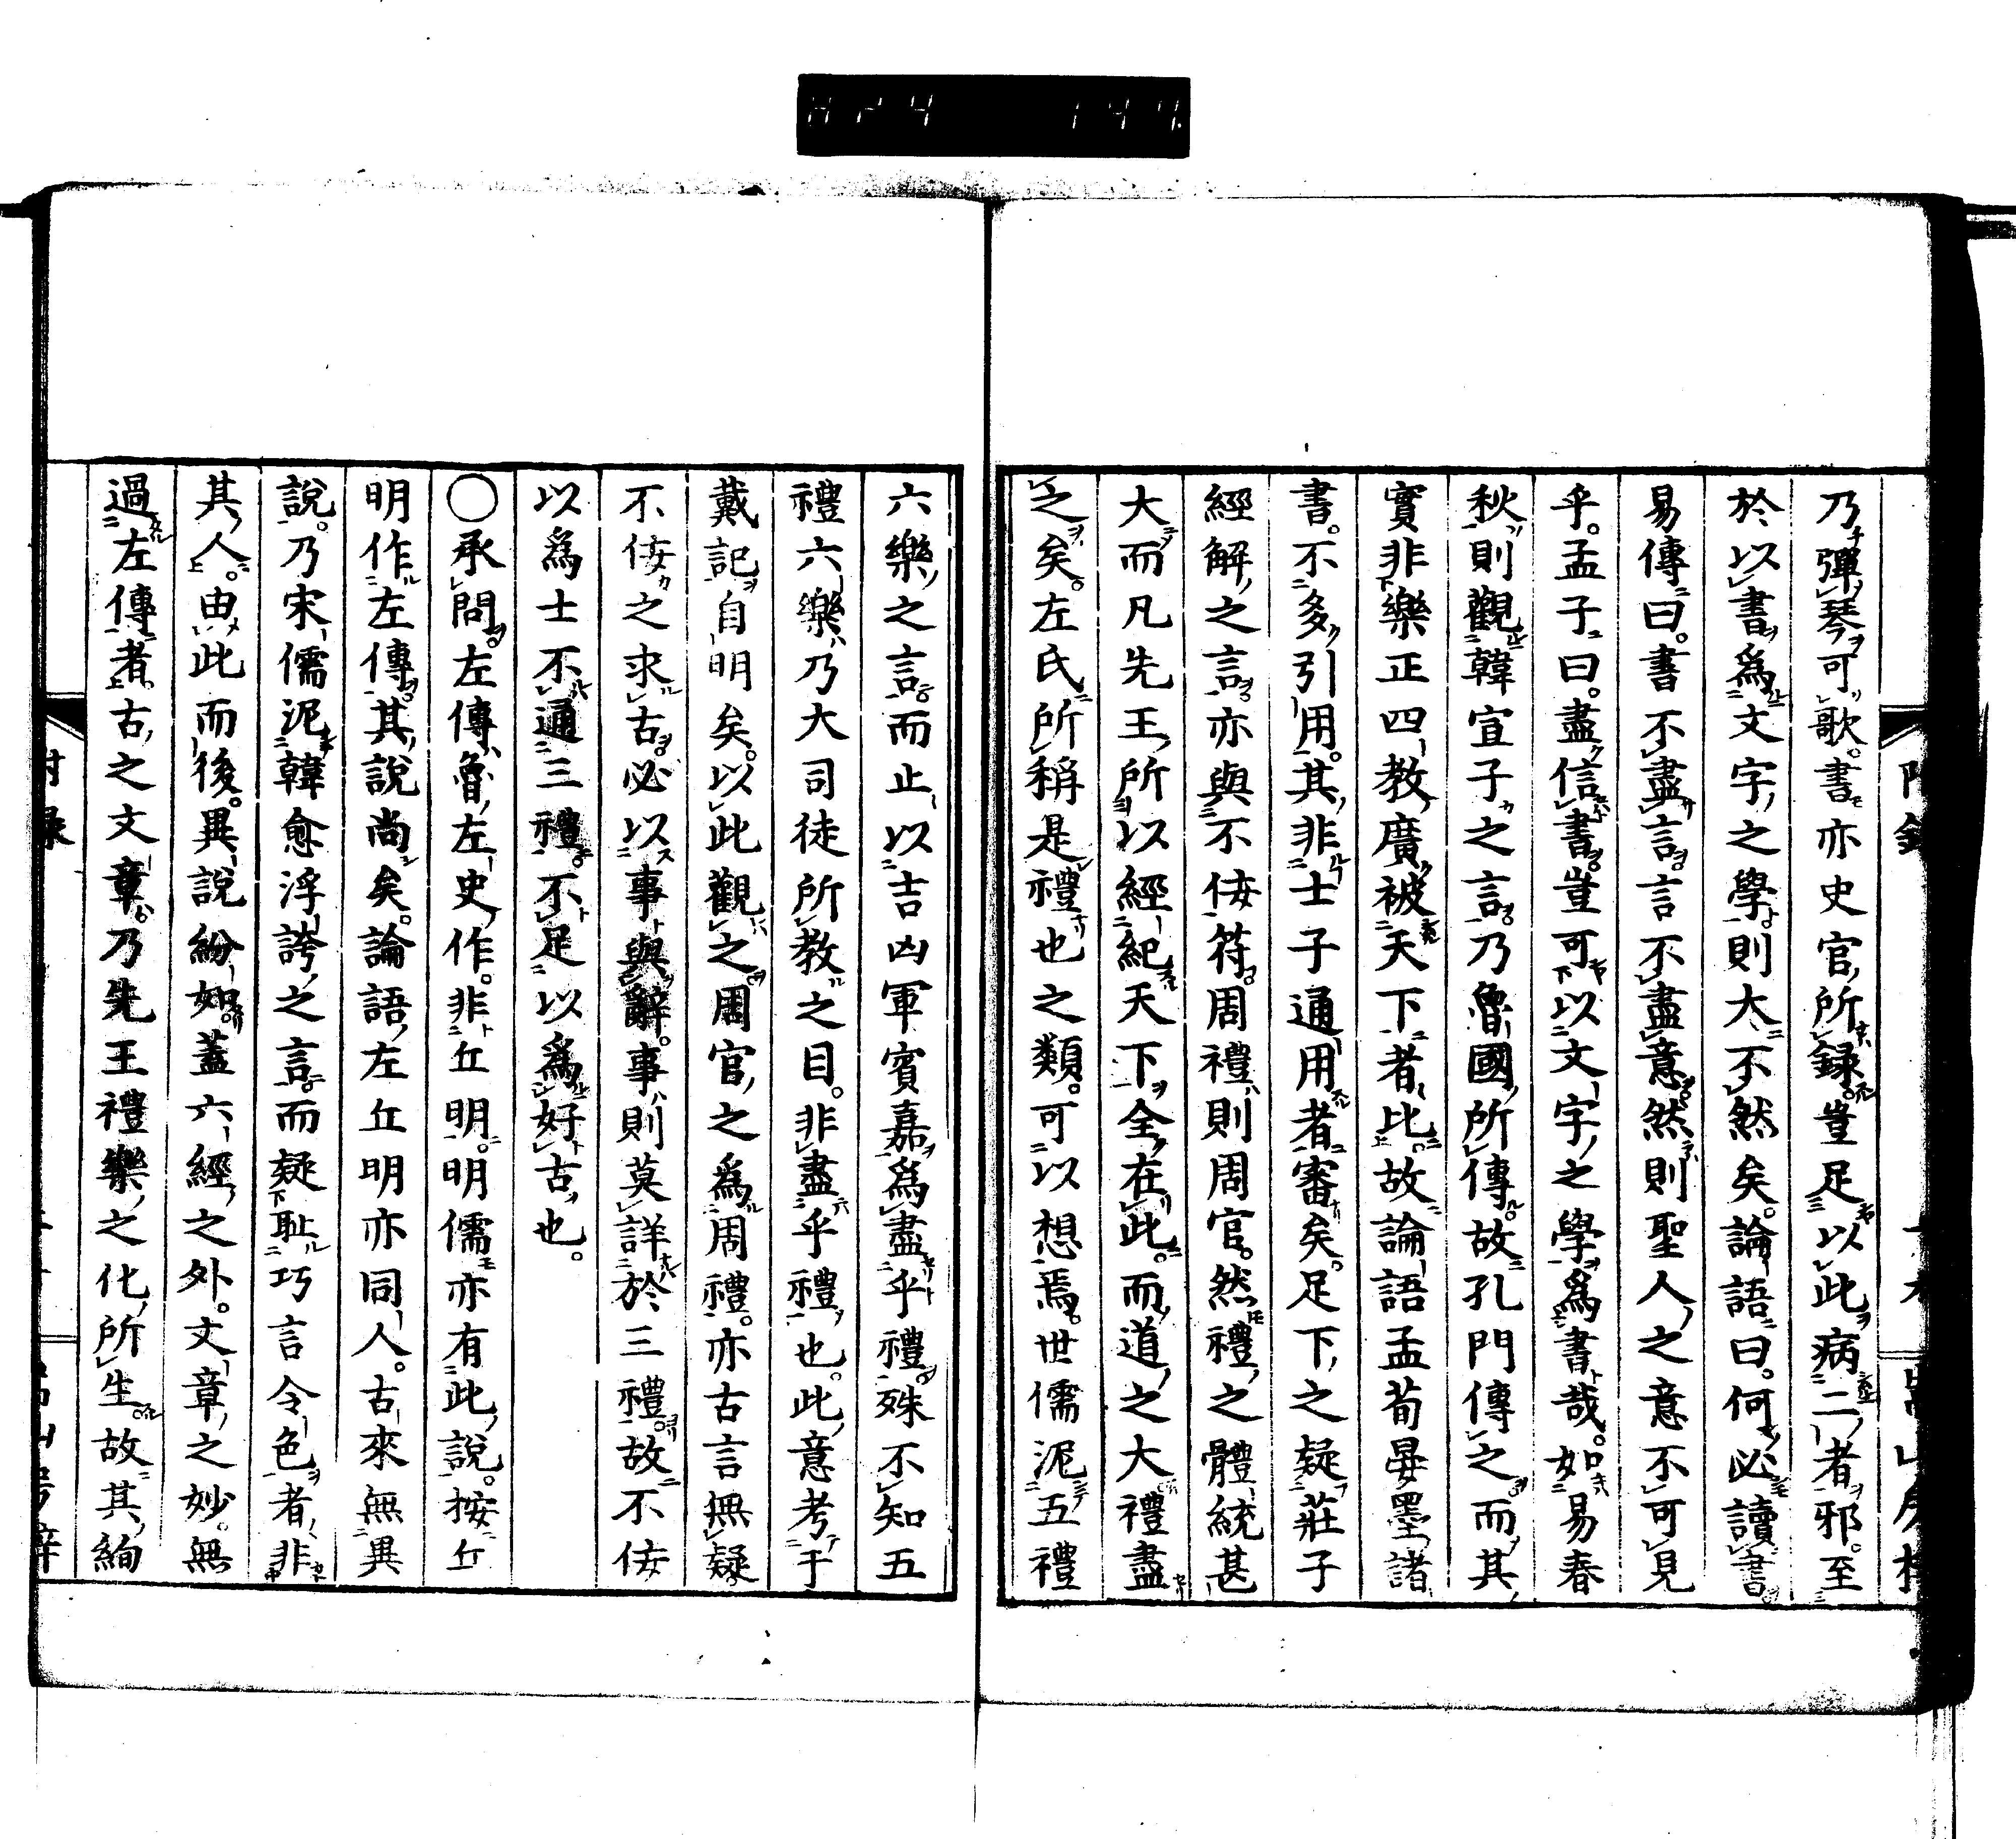 乃彈琴可歌。書亦史官所録。豈足以此病二者邪。至
於以書爲文字之學則大不然矣。論語曰。何必讀書。
易傳曰。書不盡言。言不盡意。然則聖人之意不可見
乎。孟子曰。盡信書。豈可以文字之學爲書哉。如易春
秋則觀韓宣子之言。乃魯國所傳。故孔門傳之。而其
實非樂正四教廣被天下者比。故論語孟荀晏墨諸
書。不多引用。其非士子通用者審矣。足下之疑莊子
經解之言。亦與不佞符。周禮則周官。然禮之體統甚
大而凡先王所以經紀天下。全在此。而道之大禮盡
之矣。左氏所稱是禮也之類。可以想焉。世儒泥五禮
六樂之言。而止以吉凶軍賓嘉爲盡乎禮。殊不知五
禮六樂乃大司徒所教之目。非盡乎禮也。此意考于
戴記自明矣。以此觀之。周官之爲周禮。亦古言無疑。
不佞之求古。必以事與辭。事則莫詳於三禮。故不佞
以爲士不通三禮。不足以爲好古也。
○承問。左傳魯左史作。非丘明。明儒亦有此說。按丘
明作左傳。其說尚矣。論語左丘明亦同人。古來無異
說。乃宋儒泥韓愈浮誇之言。而疑耻巧言令色者非
其人。由此而後。異說紛如。蓋六經之外。文章之妙。無
過左傳者。古之文章。乃先王禮樂之化所生。故其絢